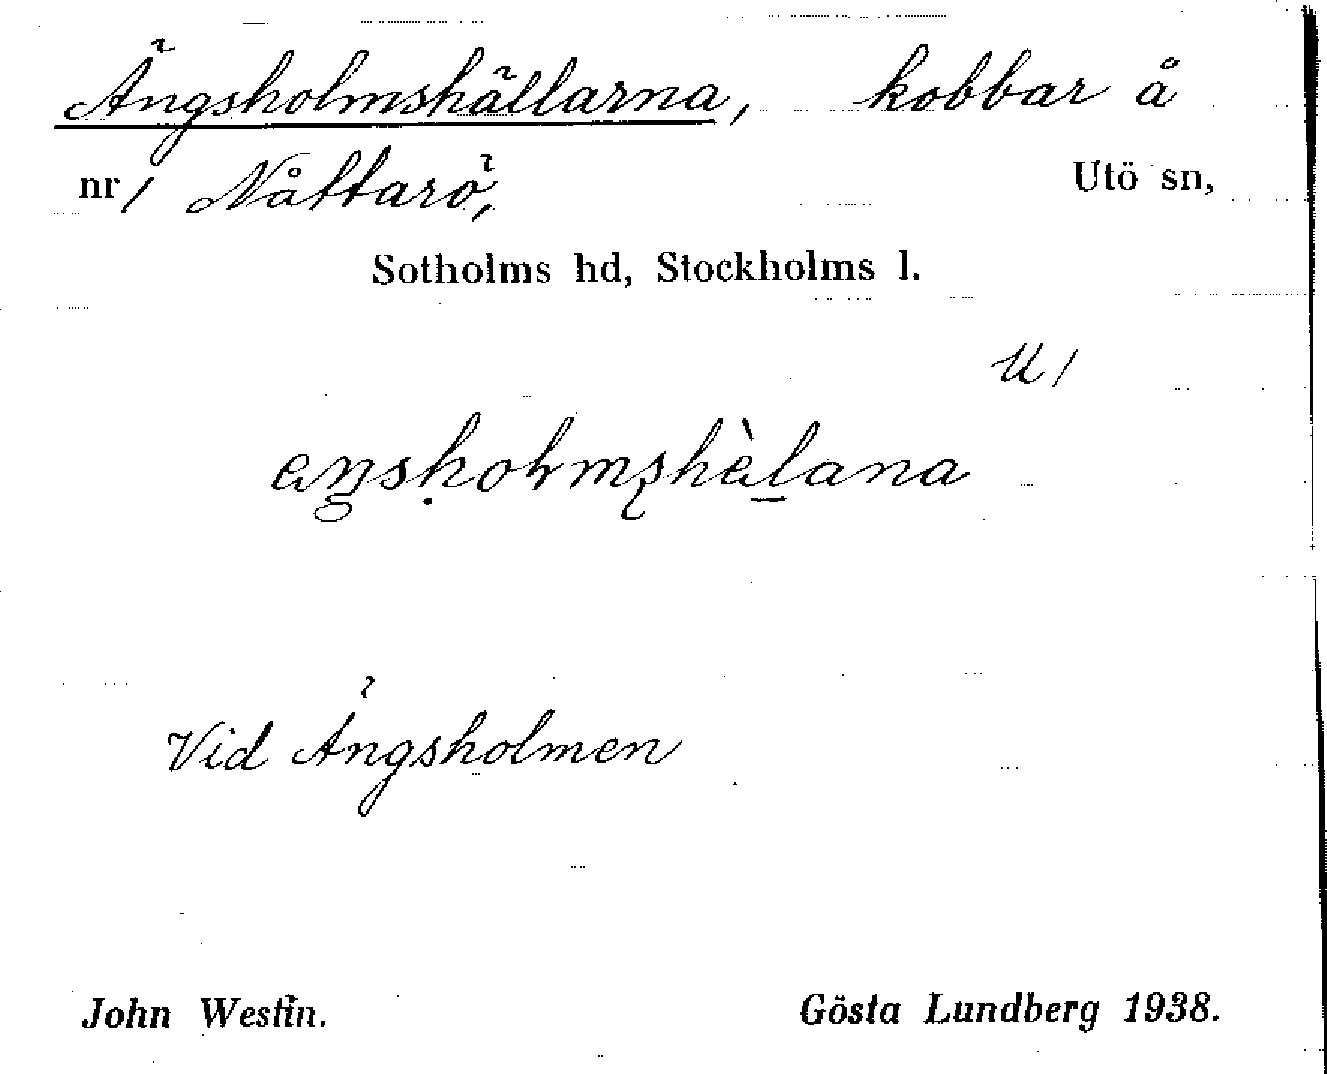 Ängsholmshällarna, kobbar å
nr 1 Nåttarö, Utö sn,
Sotholms hd, Stockholms l.
U/
eŋsholmshèlana
Vid Ängsholmen
John Westin. Gösta Lundberg 1938.